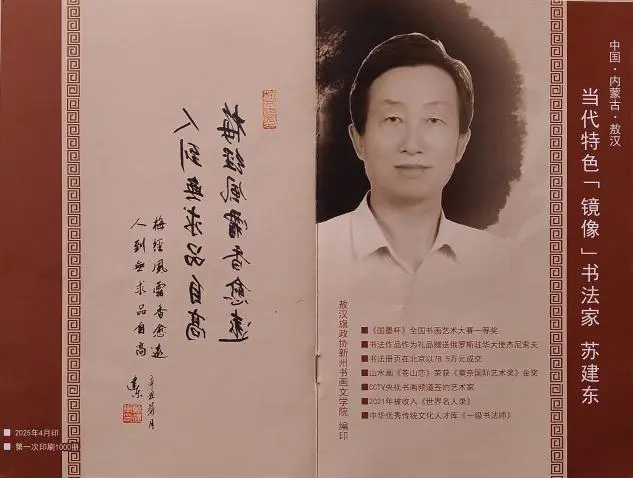 中国·内蒙古·敖汉
当代特色「镜像」书法家 苏建东
敖汉旗政协新州书画文学院 编印
■《国墨杯》全国书画艺术大赛一等奖
■书法作品作为礼品赠送俄罗斯驻华大使杰尼索夫
■书法册页在北京以78.5万元成交
■山水画《苍山恋》荣获《莫奈国际艺术奖》金奖
■CCTV央视书画频道签约艺术家
■2021年被收入《世界名人录》
■中华优秀传统文化人才库《一级书法师》
梅經風霜香愈遠
人到無求品自高
梅經風霜香愈遠
人到無求品自高
■ 2025年4月印
■ 第一次印刷1000册